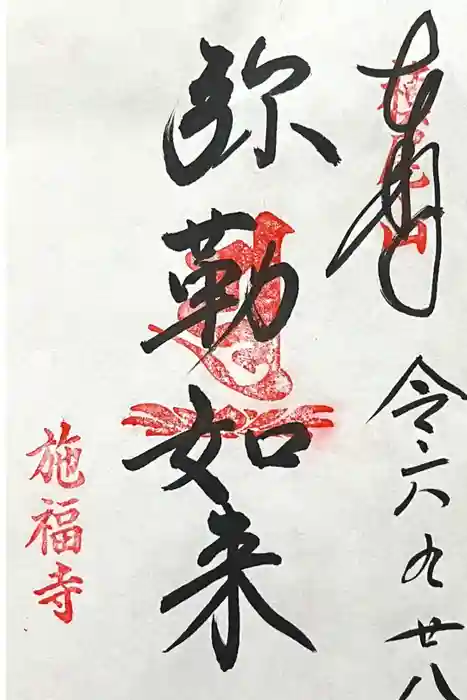 奉
令六九廿八
弥勒如来
施福寺